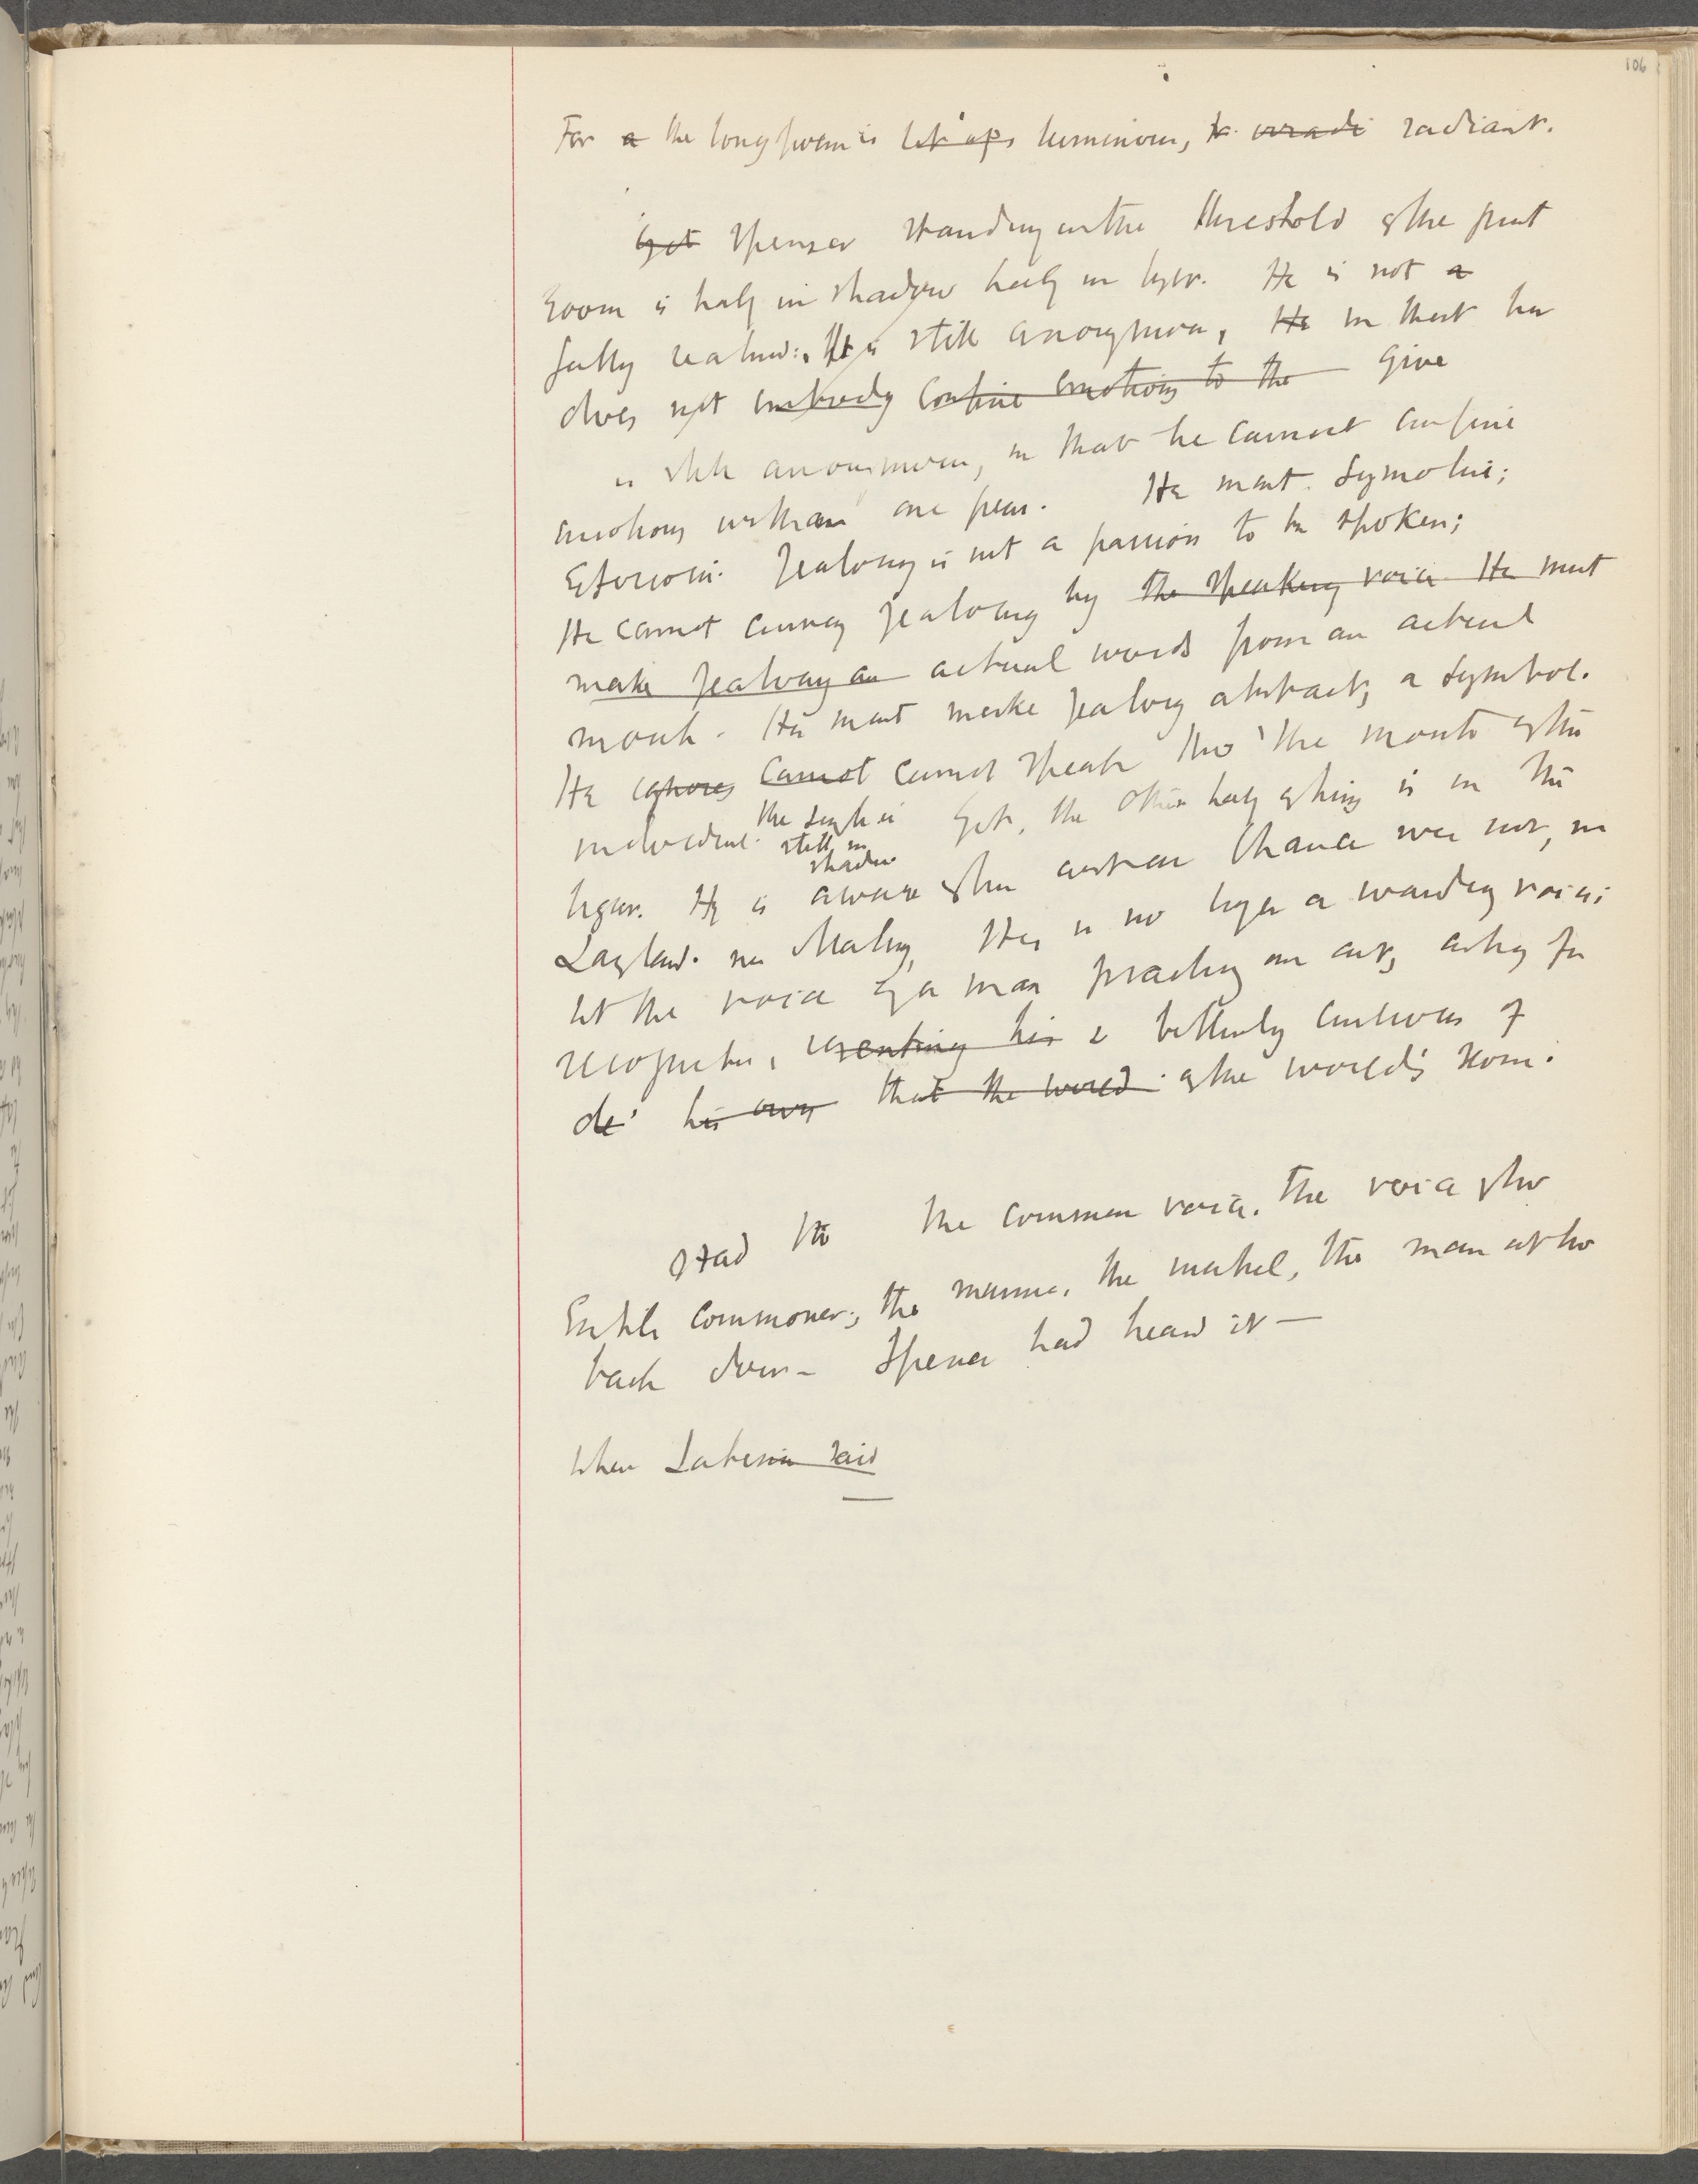 106
For a the long poem is lit up luminous, it irradi radiant.
Yet Spenser standing in the threshold of the great
room is half in shadow half in light. He is not a
fully realised: He is still anonymous, He in that he
does not embody confine emotions to the give
is still anonymous, in that he cannot confine
emotions within one person. He must symbolise;
exteriorise. Jealousy is not a passion to be spoken;
He cannot convey jealousy by the speaking voice He must
make jealousy an actual words from an actual
mouth. He must make jealousy abstract, a symbol.
He ignores cannot cannot speak thro' the mouth of the
individual. the singer is still in shadow Yet, the other half of him is in the
light. He is aware of his art as Chaucer was not, nor
Langland. nor Malory, His is no longer a wandering voice;
but the voice of a man practising an art, asking for
recognition, resenting his & bitterly conscious of
de his own that the world of the world's scorn.
Had the the common voice. the voice of the
commoner; the the man at the
back door - Spenser had heard it —
When said